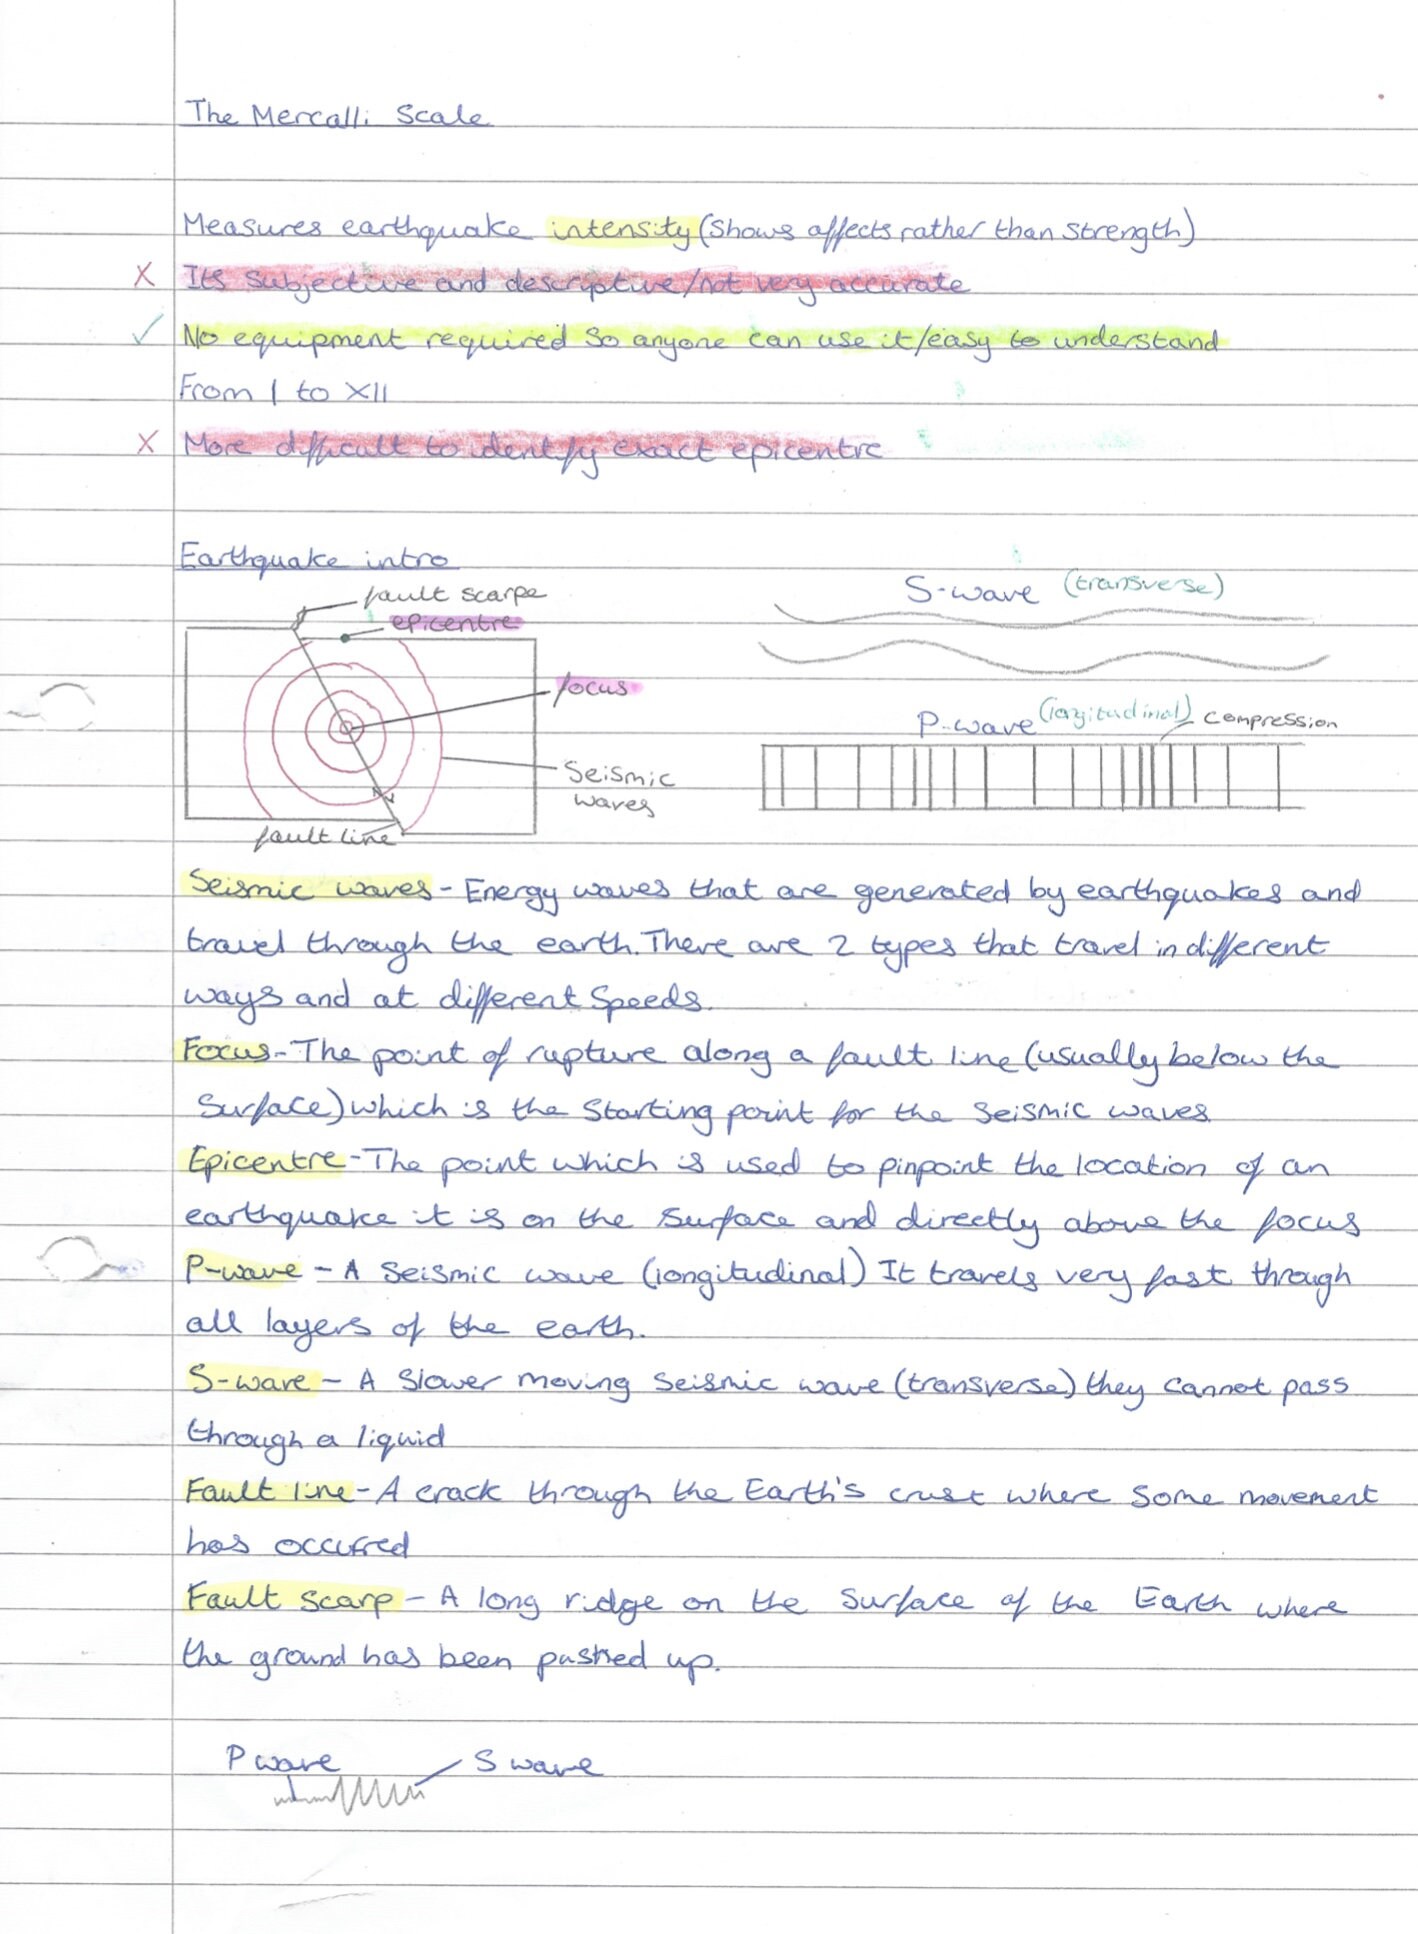 The Mercalli Scale
Measures earthquake intensity (Shows affects rather than strength)
X Its subjective and descriptive/not very accurate
✓ No equipment required so anyone can use it/easy to understand
From I to XII
X More difficult to identify exact epicentre
Earthquake intro
fault scarpe
epicentre
focus
Seismic
waves
fault line
S-wave (transverse)
P-wave (longitudinal) compression
Seismic waves - Energy waves that are generated by earthquakes and
travel through the earth. There are 2 types that travel in different
ways and at different speeds.
Focus - The point of rupture along a fault line (usually below the
surface) which is the starting point for the seismic waves
Epicentre - The point which is used to pinpoint the location of an
earthquake it is on the surface and directly above the focus
P-wave - A seismic wave (longitudinal) It travels very fast through
all layers of the earth.
S-wave - A slower moving seismic wave (transverse) they cannot pass
through a liquid
Fault line - A crack through the Earth's crust where some movement
has occurred
Fault scarp - A long ridge on the surface of the Earth where
the ground has been pushed up.
P wave S wave